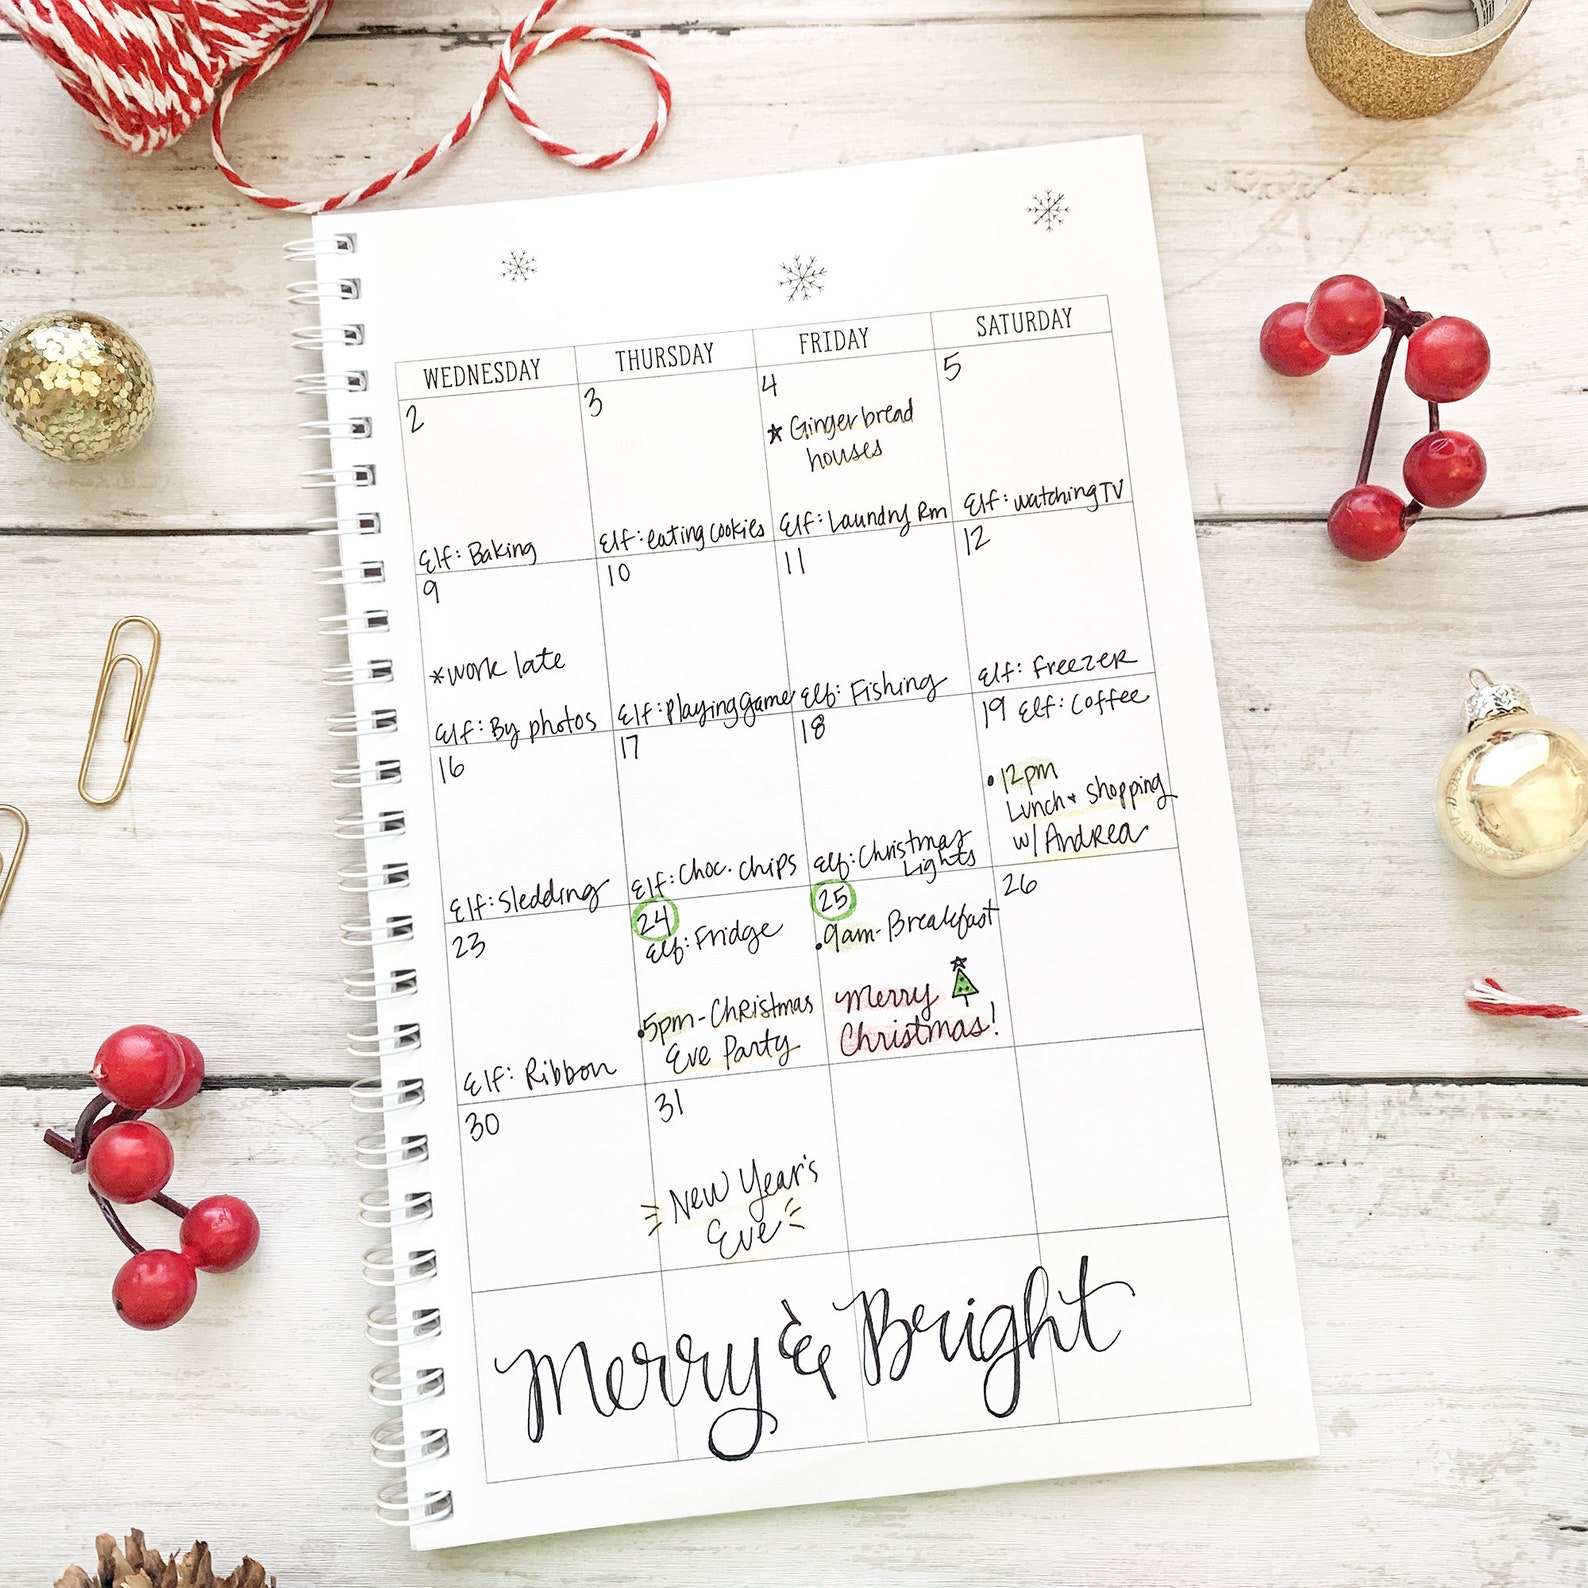 WEDNESDAY THURSDAY FRIDAY SATURDAY
2
Elf: Baking
3
Elf: eating cookies
4
* Gingerbread
houses
Elf: Laundry Rm
5
Elf: watching TV
9
*work late
Elf: By photos
10
Elf: Playing game
11
Elf: Fishing
12
Elf: Freezer
16
Elf: Sledding
17
Elf: Choc. Chips
18
Elf: Christmas
Lights
19 Elf: Coffee
• 12pm
Lunch + Shopping
w/ Andrea
23
Elf: Ribbon
24
Elf: Fridge
•5pm-Christmas
Eve Party
25
•9am-Breakfast
Merry
Christmas!
26
30
31
New Year's
Eve
Merry & Bright